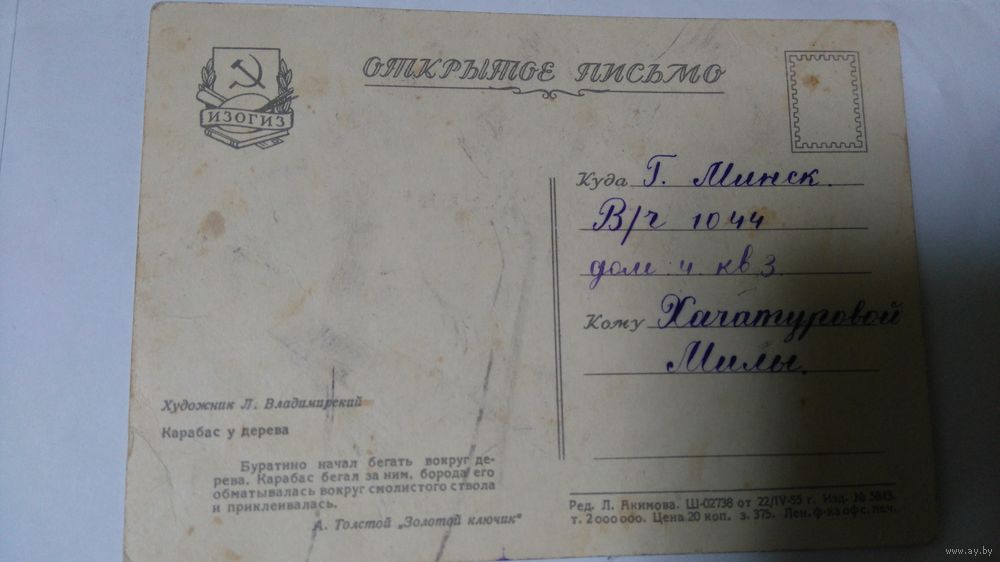 ОТКРЫТОЕ ПИСЬМО
ИЗОГИЗ
Куда Г. Минск.
В/ч 1044
дом 4 кв 3
Кому Хачатуровой
Милы.
Художник Л. Владимирский
Карабас у дерева
Буратино начал бегать вокруг де-
рева. Карабас бегал за ним, борода его
обматывалась вокруг смолистого ствола
и приклеивалась.
А. Толстой „Золотой ключик"
Ред. Л. Якимова. Ш-02738 от 22/IV-55 г. Изд. № 5813.
т. 2000000. Цена 20 коп. з. 375. Лен. ф-ка офс. печ.
www.ay.by